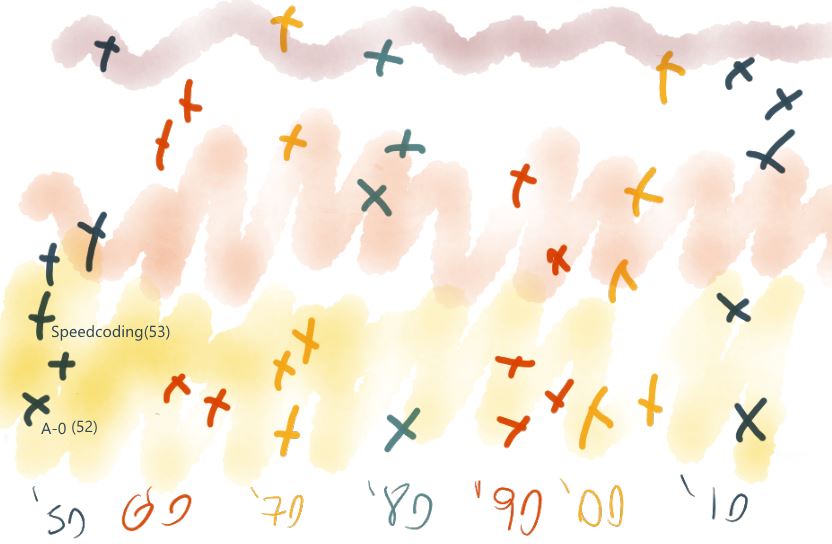 Speedcoding(53)
A-0 (52)
'50 60 '70 '80 '90 '00 '10